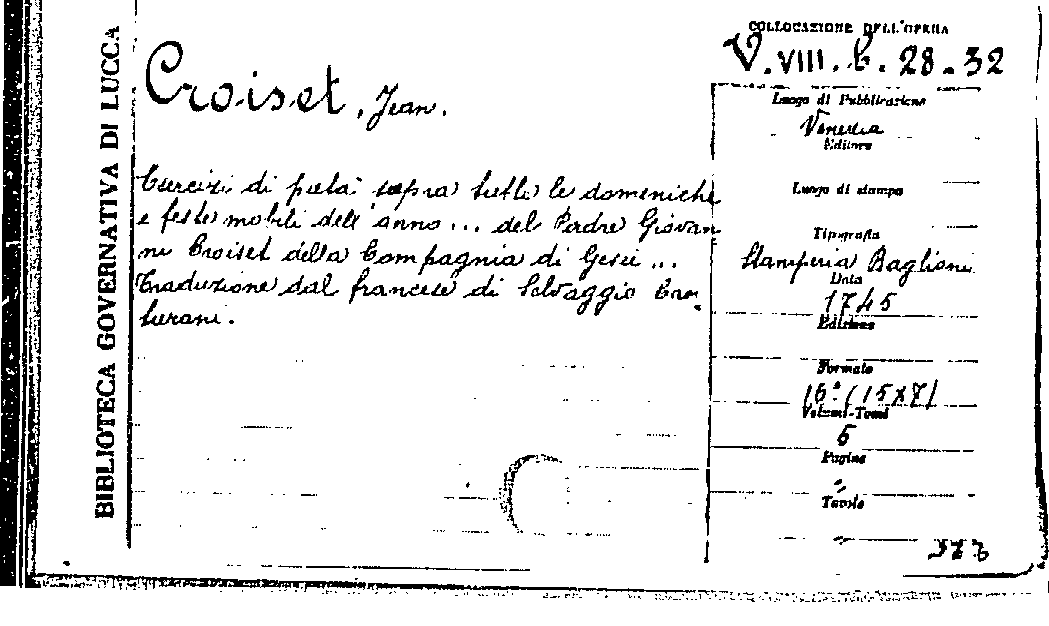 BIBLIOTECA GOVERNATIVA DI LUCCA
Croiset, Jean.
Esercizi di pietà sopra tutte le domeniche
e feste mobili dell'anno ... del Padre Giovan
ni Croiset della Compagnia di Gesù ...
Traduzione dal francese di Selvaggio Can
turani.
COLLOCAZIONE DELL'OPERA
V. VIII. b. 28-32
Luogo di Pubblicazione
Venezia
Editore
Luogo di stampa
Tipografia
Stamperia Baglioni
Data
1745
Edizione
Formato
16° (15x7)
Volumi-Tomi
5
Pagine
Tavole